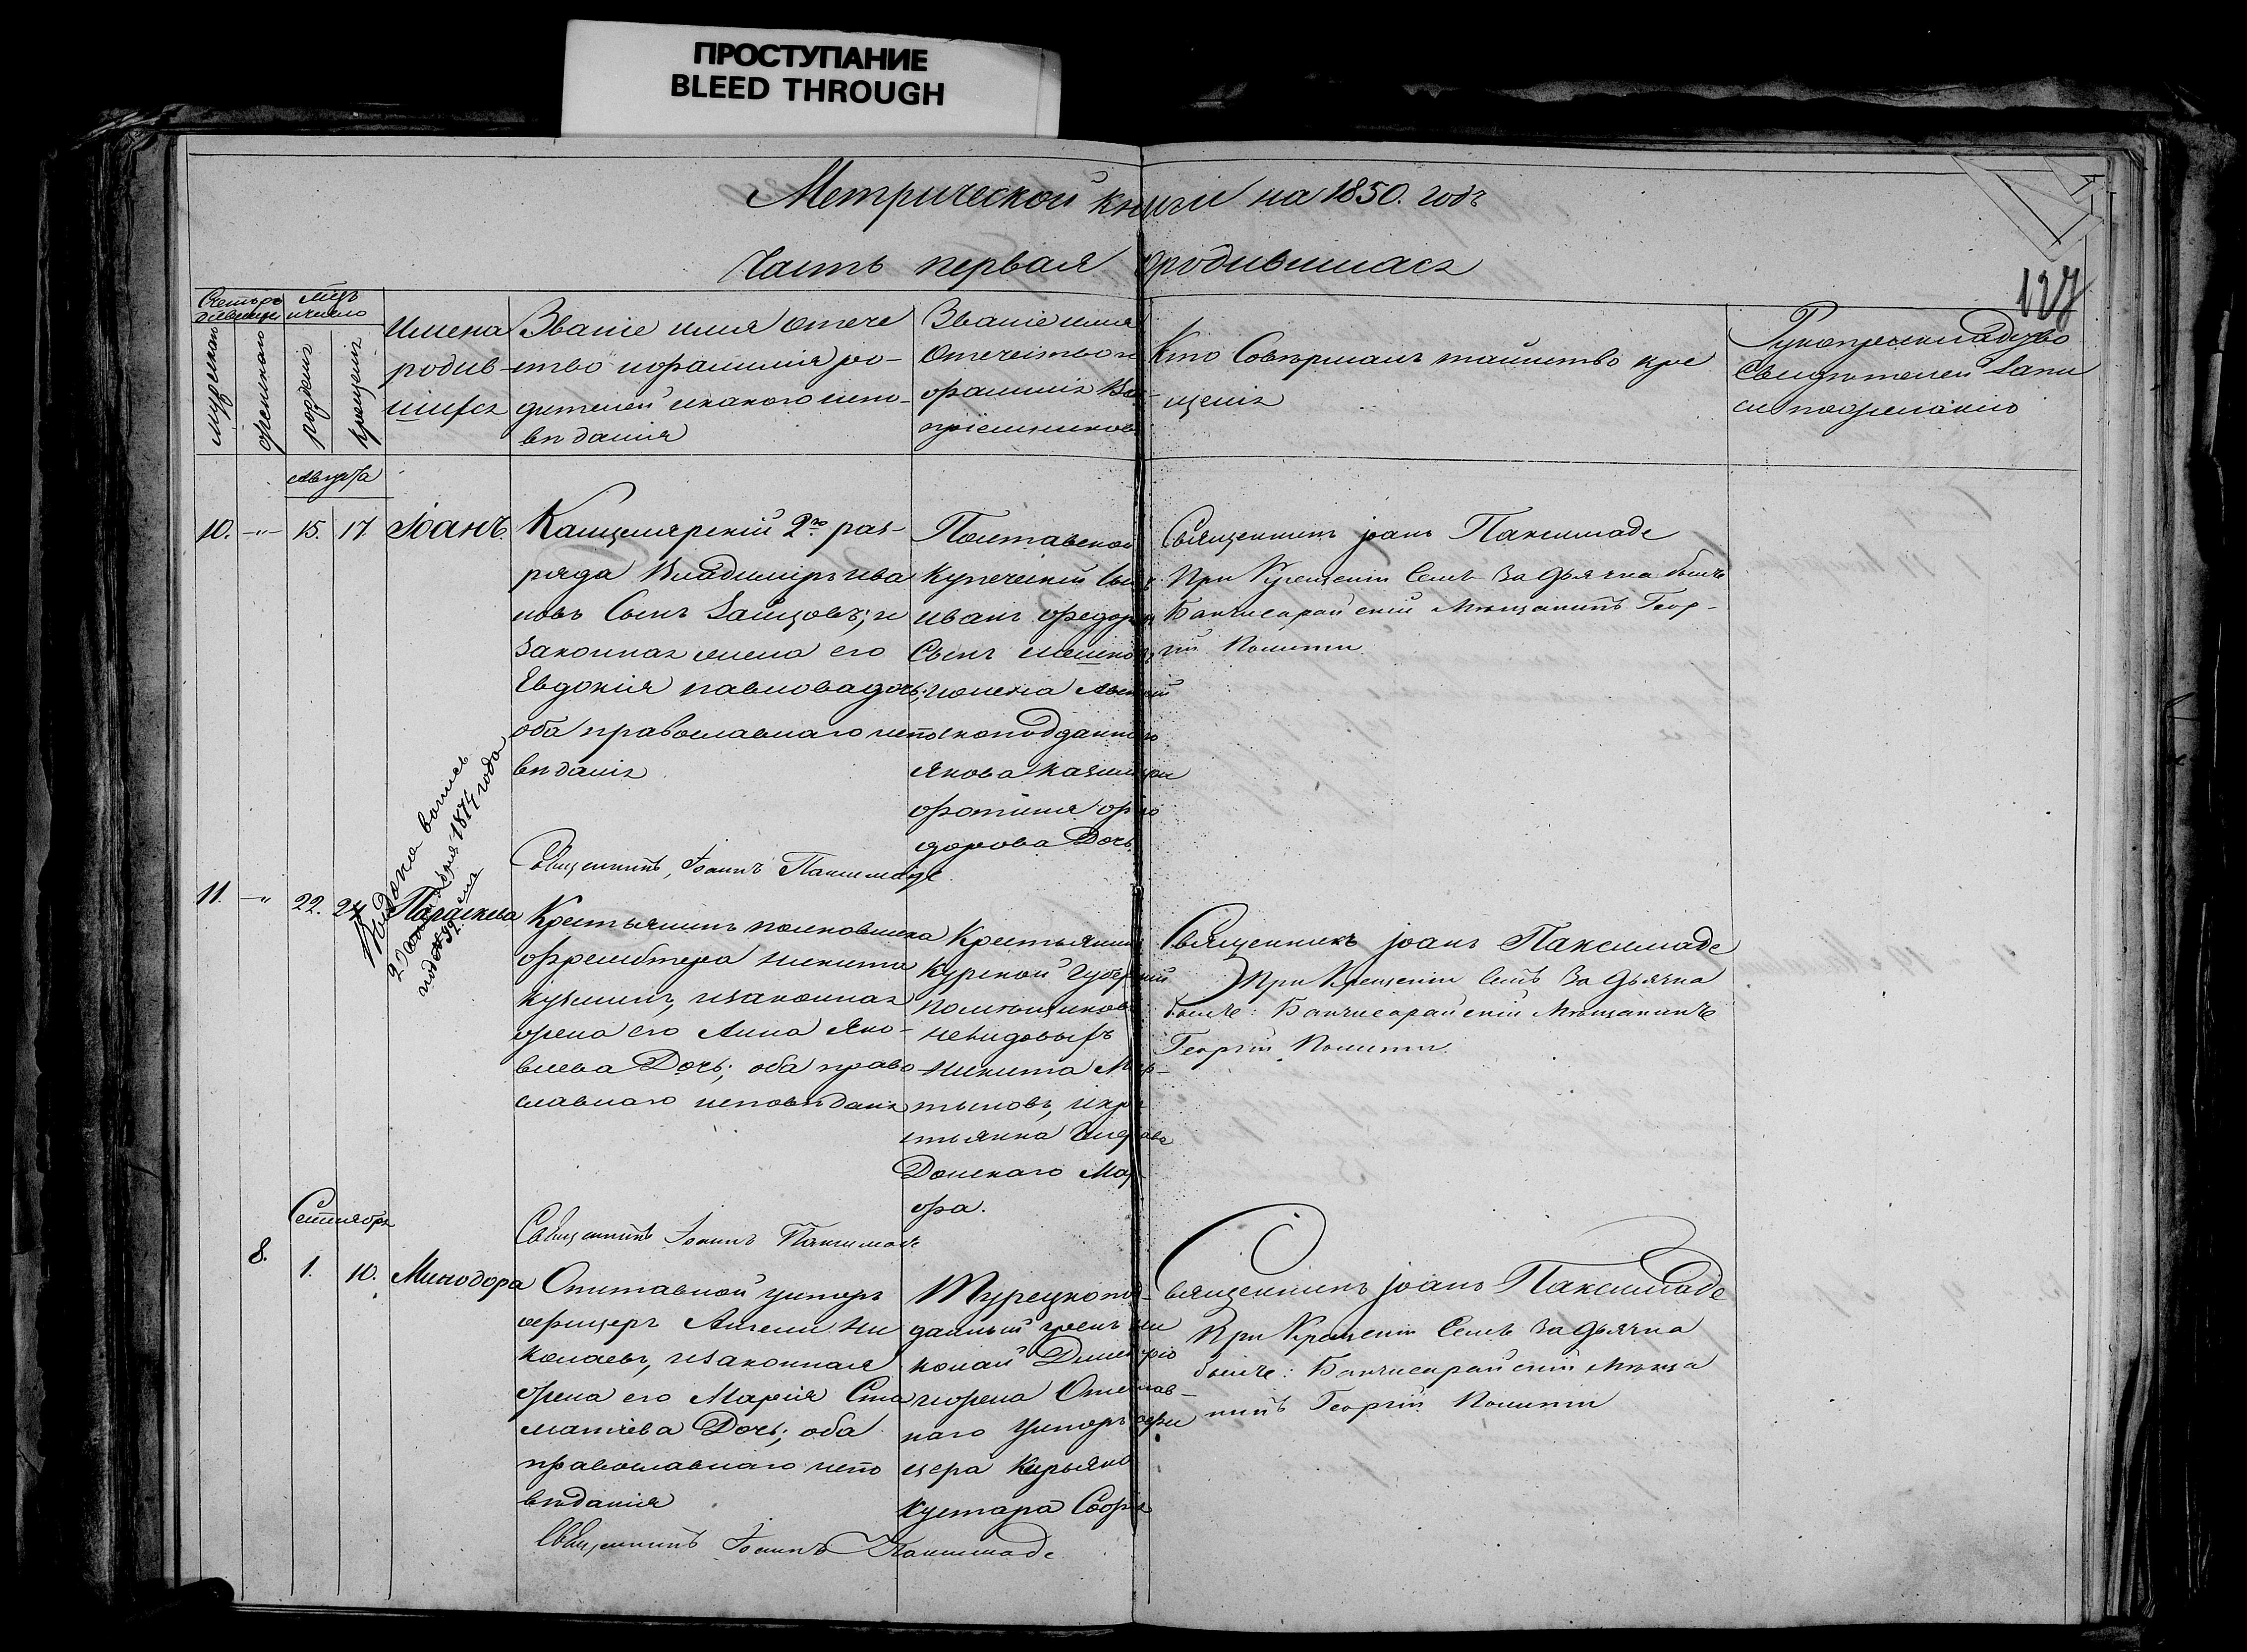 ПРОСТУПАНИЕ
BLEED THROUGH
Метрической книги на 1850. годъ
Часть первая о родившихся
127
Мужеска
женскаго
рожденія
крещенія
Имена
родив-
шихся
Званіе имя отече
ство и фамилія ро-
дителей и какого испо-
вѣданія
Званіе имя
Отечество и
фамилія Вос
пріемниковъ
Кто Совершалъ таинство кре
щенія
Рукоприкладство
Свидѣтелей запи
си по желанію
Августа
10. -"- 15. 17. Іоанъ
Канцелярскій 2го раз-
ряда Владиміръ ива
новъ Сынъ Зайцовъ; и
законная жена его
Евдокія павлова дочь;
оба православнаго испо
вѣданія
Священникъ, Іоаннъ Паксимаде
купеческій Сынъ
иванъ федоровъ
Сынъ
и жена
Якова
фотиния фео
дорова Дочь
Священникъ іоанъ Паксимаде
При Крещеніи Семъ За Дьячка былъ
Бахчисарайскій Мѣщанинъ Геор-
гій
Выдана
1874 года
11. -" 22. 24 Параскева
Крестьянинъ полковника
никита
кузминъ, и законная
жена его Анна Яко-
влева Дочь; оба право
славнаго исповѣданія
Священникъ Іоаннъ Паксимаде
Крестьянинъ
курской губерніи
помѣщиковъ
никита Мар-
тыновъ, и кре
стьянка
Донскаго Мар
фа.
Священникъ іоанъ Паксимаде
При Крещеніи Семъ За Дьячка
былъ: Бахчисарайскій Мѣщанинъ
Георгій
Сентября
8. 1. 10. Минодора
Отставной унтеръ
офицеръ Ангели Ни
колаевъ, и законная
жена его Марія Ста
матіева Дочь; оба
православнаго испо
вѣданія
Священникъ Іоаннъ Паксимаде
Турецкопод-
данный грекъ ни
колай Димитріо
и жена Отстав-
наго унтеръ офи
цера Кирьяко
кустара Софія
Священникъ іоанъ Паксимаде
При Крещеніи Семъ За Дьячка
былъ: Бахчисарайскій мѣща
нинъ Георгій